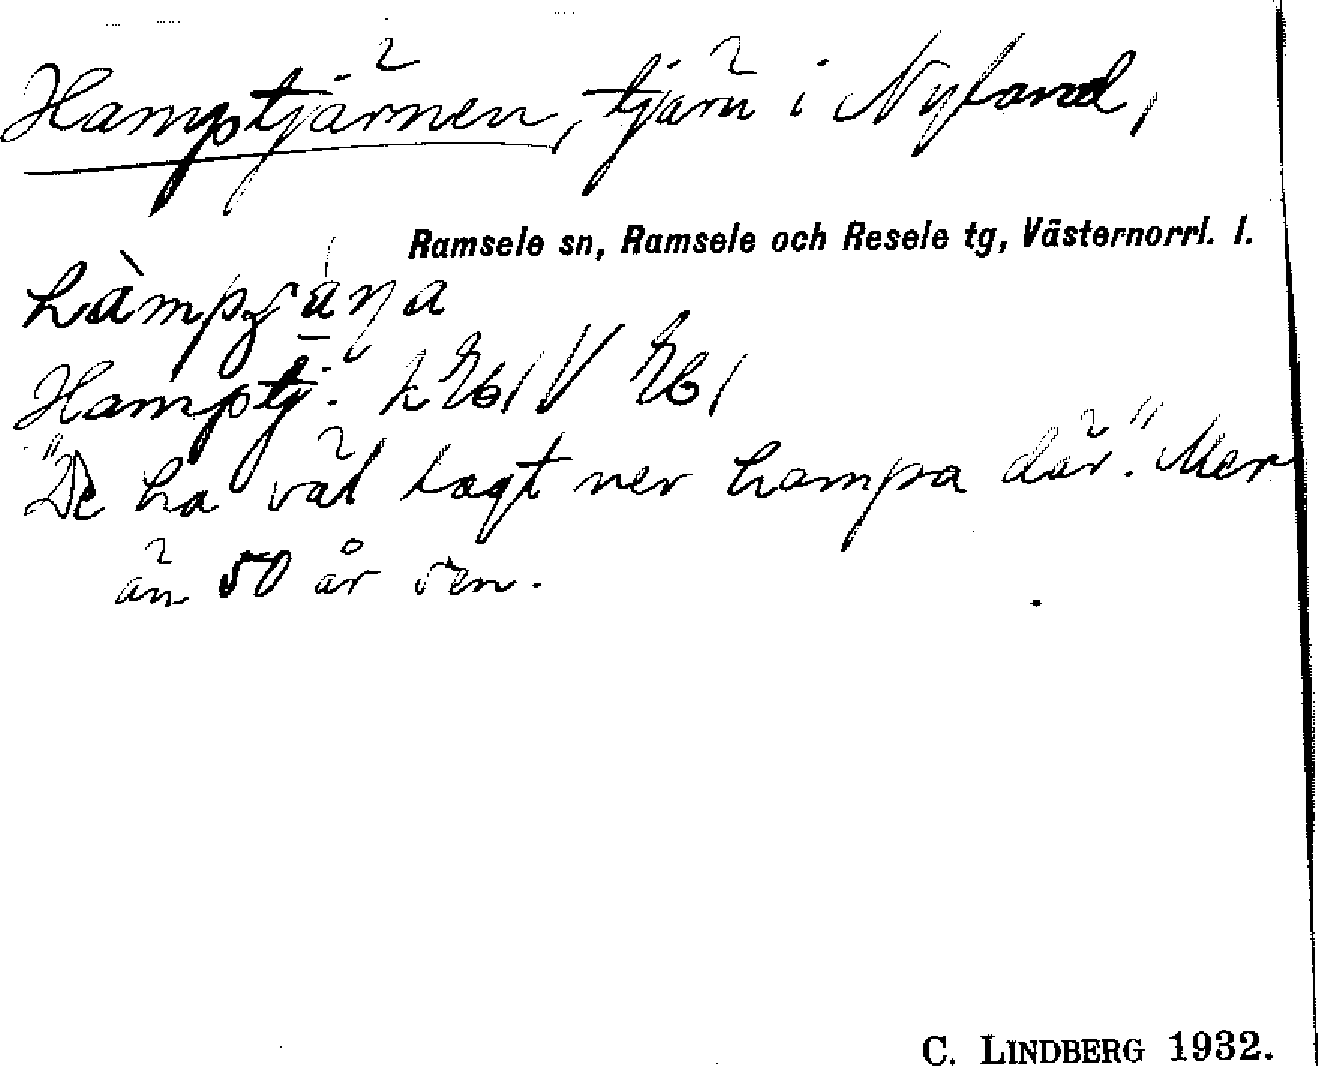 Hamptjärnen, tjärn i Nyland,
Ramsele sn, Ramsele och Resele tg, Västernorrl. l.
Hamptj.
"De ha väl lagt ner hampa där." Mer
än 50 år sen.
C. LINDBERG 1932.